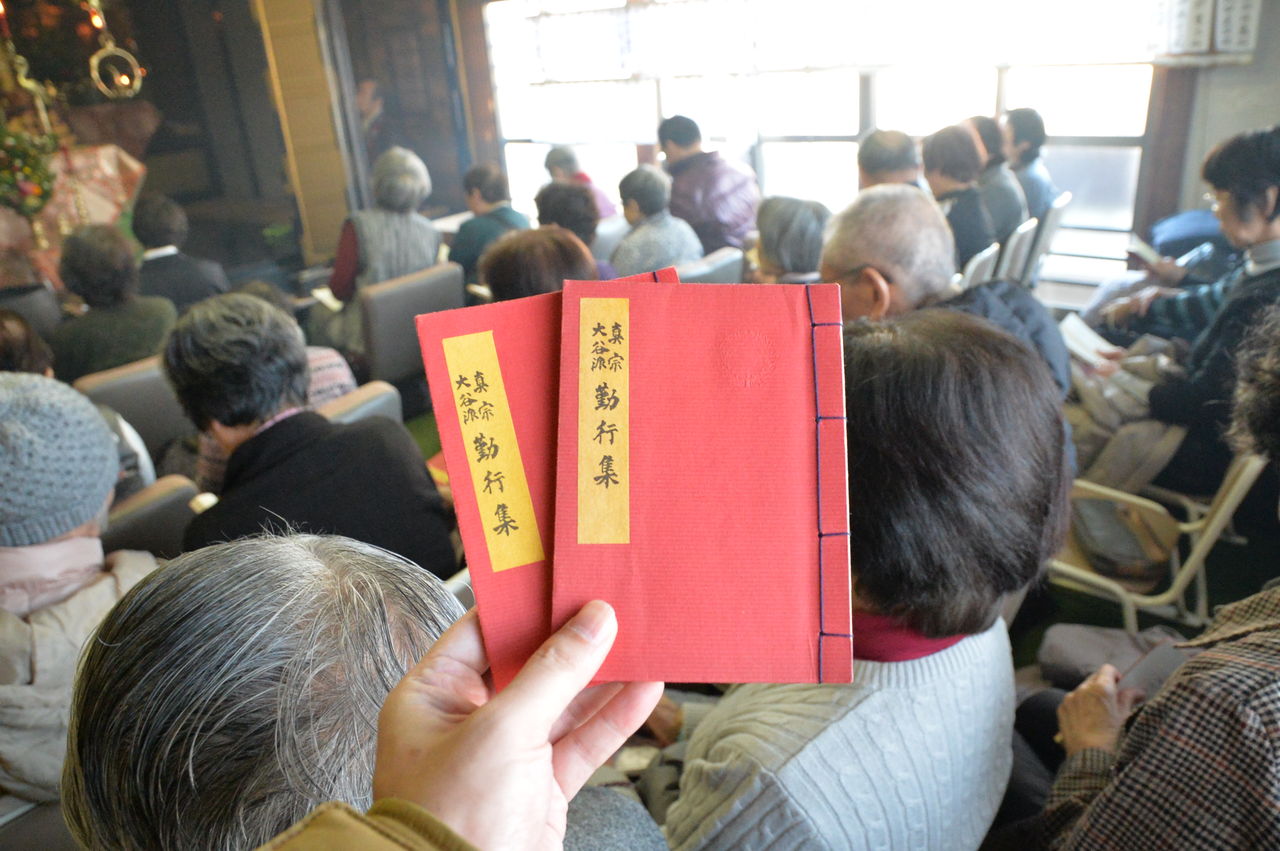 真宗
大谷派
勤行集
真宗
大谷派
勤行集